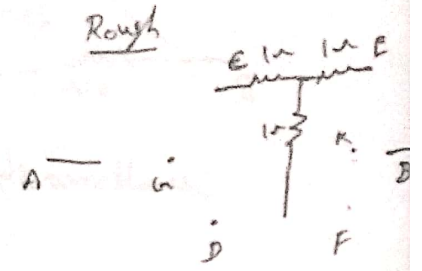 Rough
E 1Ω 1Ω E
1Ω
K
A B
D F